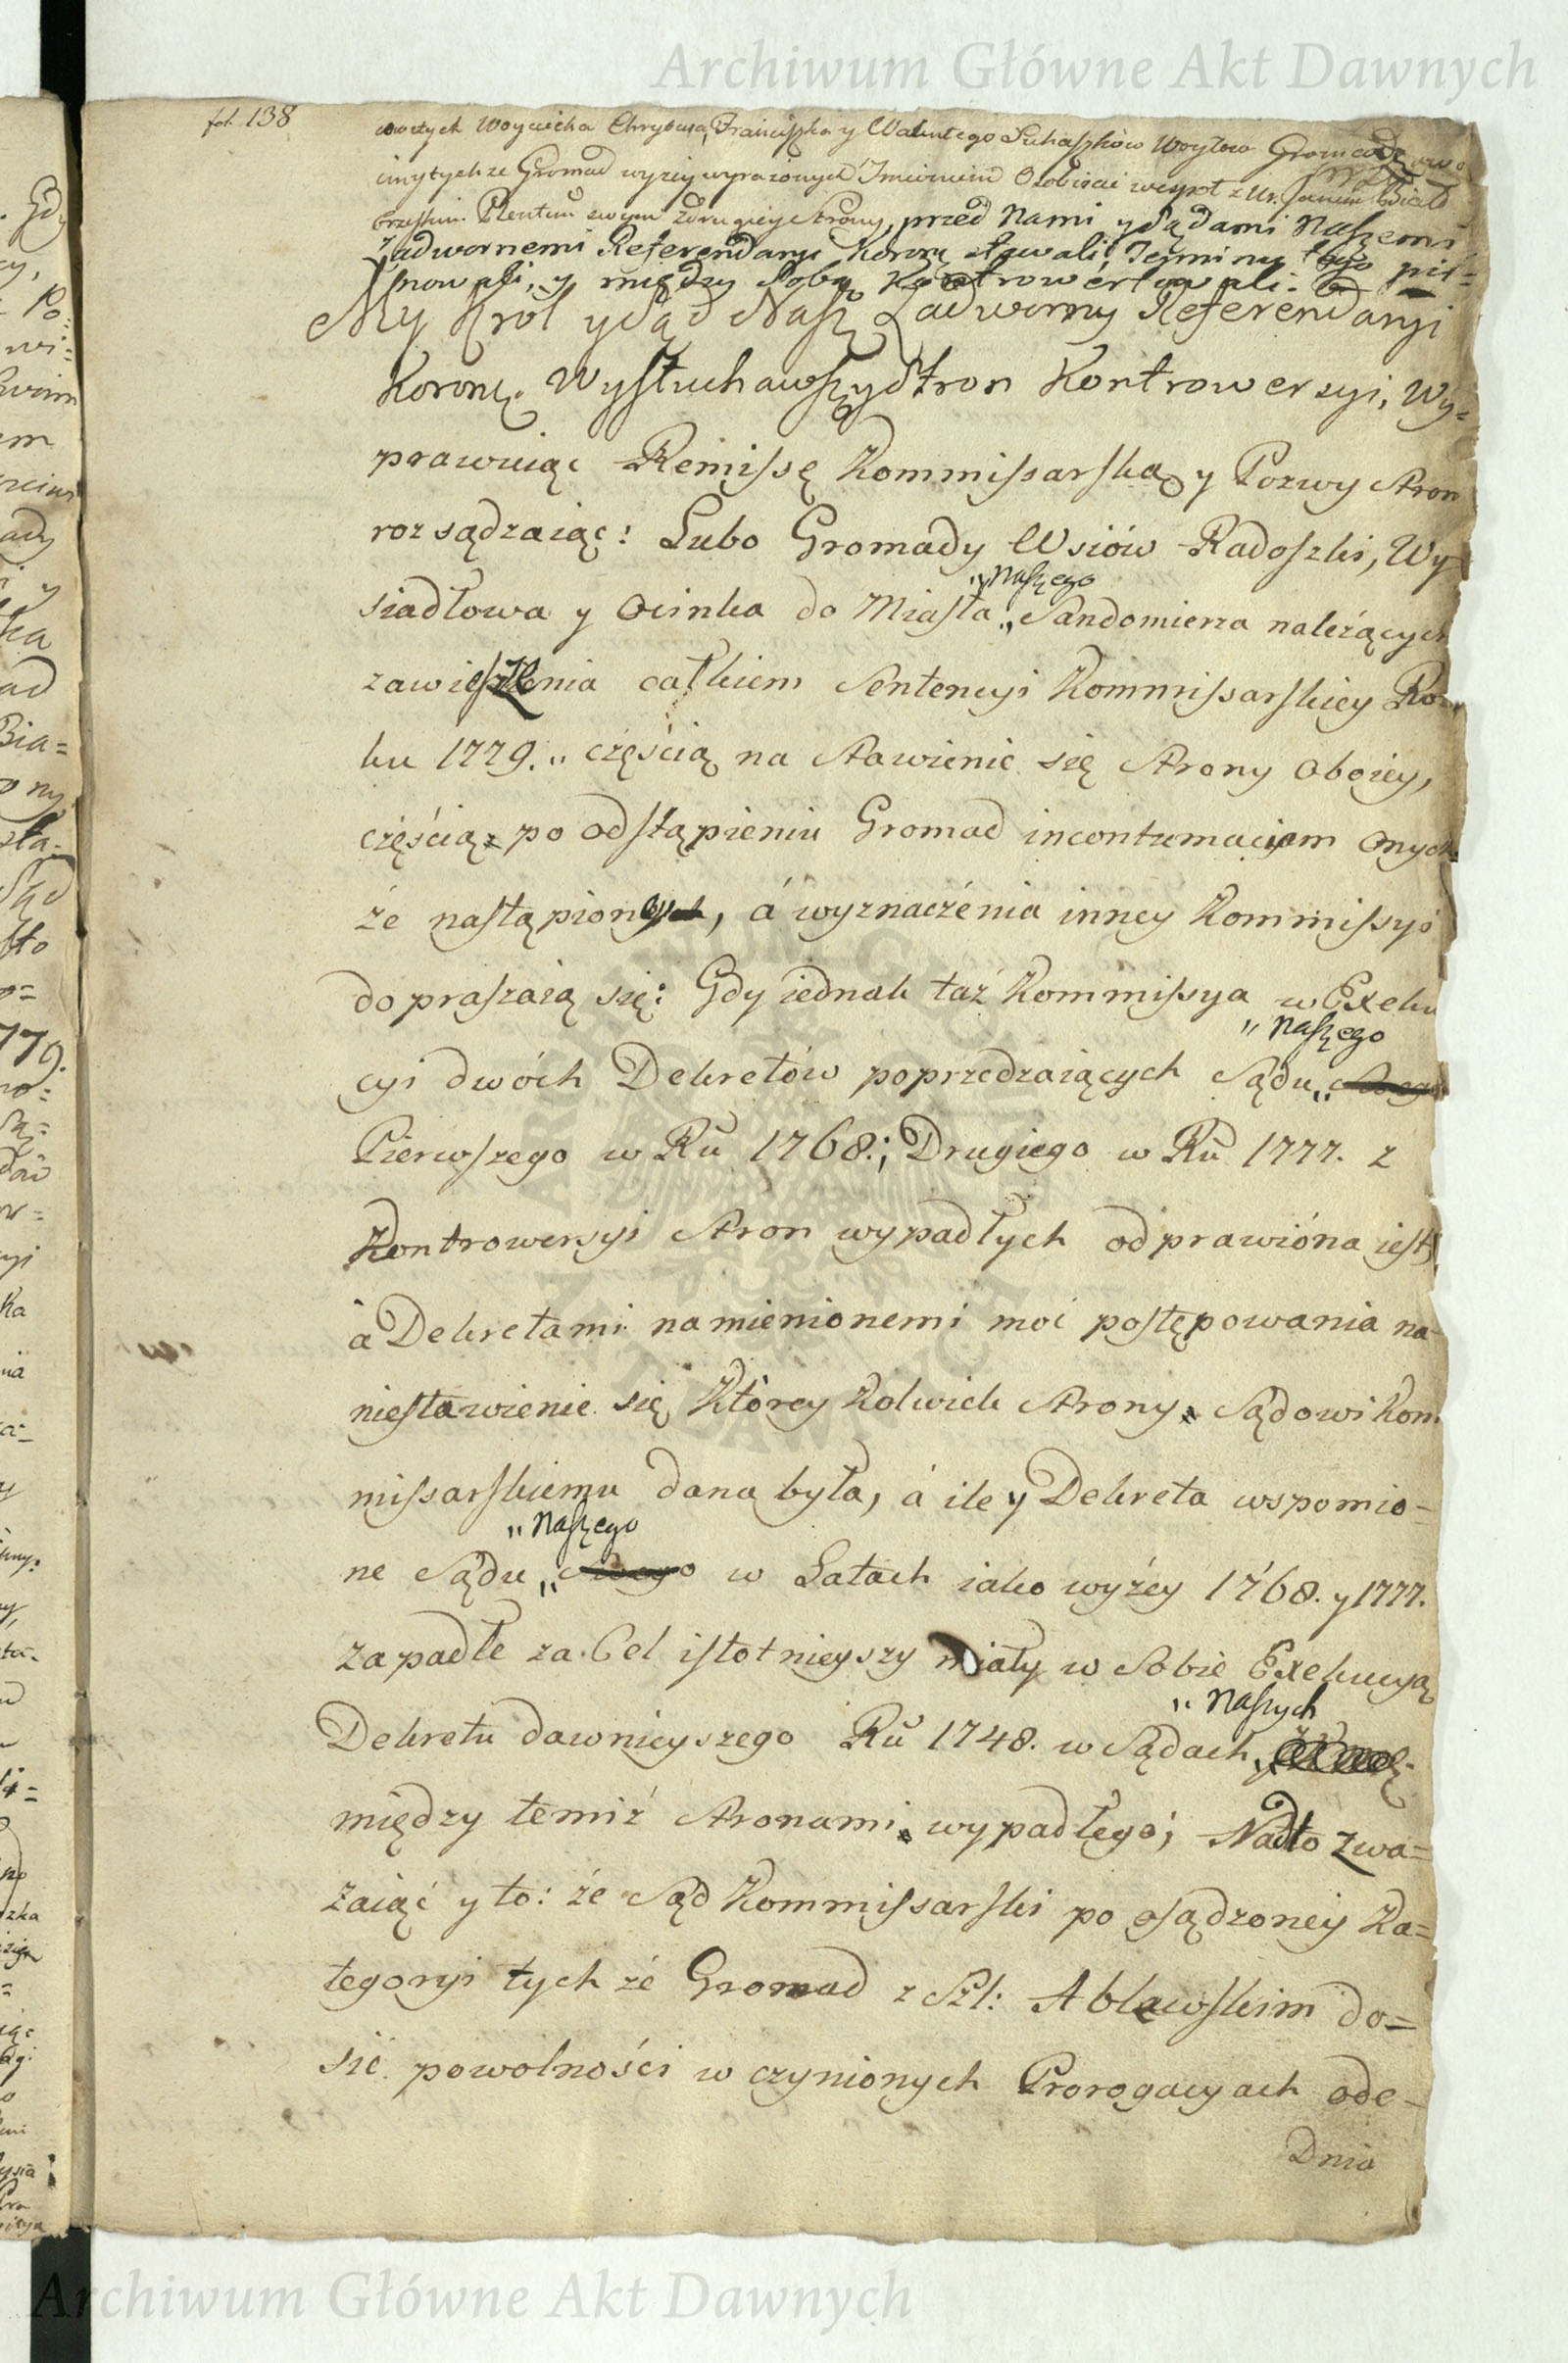 Archiwum Główne Akt Dawnych
fol. 138
Woyciecha Chrytusa, Franciszka y Walentego Łukaszków Woytow Gromad
innych ze Gromad wyżey wyrażonych Imieniem Osobiście wespoł z Ur. Janem
Plentem swym z drugiey Strony, przed Nami y Sądami Naszemi
Zadwornemi Referendaryi Koronney stawali, Terminu tego pil=
nowali, y między Sobą Kontrowertowali.
My Krol y Sąd Nasz Zadworny Referendaryi
Koronney. Wysłuchawszy Stron Kontrowersyi, Wy=
prawuiąc Remissę Kommissarską y Pozwy Stron
rozsądzaiąc: Lubo Gromady Wsiów Radoszki, Wy
„ Naszego
siadłowa y Ocinka do Miasta „ Sandomierza należących
zawieszenia całkiem Sentencyi Kommissarskiey Ro=
ku 1779. „ częścią na Stawienie się Strony oboiey,
częścią po odstąpieniu Gromad in contumaciam onych
że nastąpioney, á wyznaczenia inney Kommissyi
dopraszaią się: Gdy iednak taż Kommissya w Exeku
„ Naszego
cyi dwóch Dekretów poprzedzaiących Sądu „ Swego
Pierwszego w Rũ 1768.; Drugiego w Rũ 1777. z
Kontrowersyi Stron wypadłych odprawióna iest,
à Dekretami namienionemi moc postępowania na
niestawienie się Którey Kolwiek Strony Sądowi Kom
missarskiemu dana była, á ile y Dekreta wspomio=
„ Naszego
ne Sądu „ Swego w Latach iako wyżey 1768. y 1777.
zapadłe za Cel istotnieyszy miały w Sobie Exekucyą
„ Naszych
Dekretu dawnieyszego Rũ 1748. w Sądach
między temiż Stronami wypadłego; Nadto zwa=
żaiąc y to: że Sąd Kommissarski po osądzoney Ka=
tegoryi tych że Gromad z Szl: Abławskim do=
sić powolności w czynionych Prorogacyach ode=
Dnia
Archiwum Główne Akt Dawnych